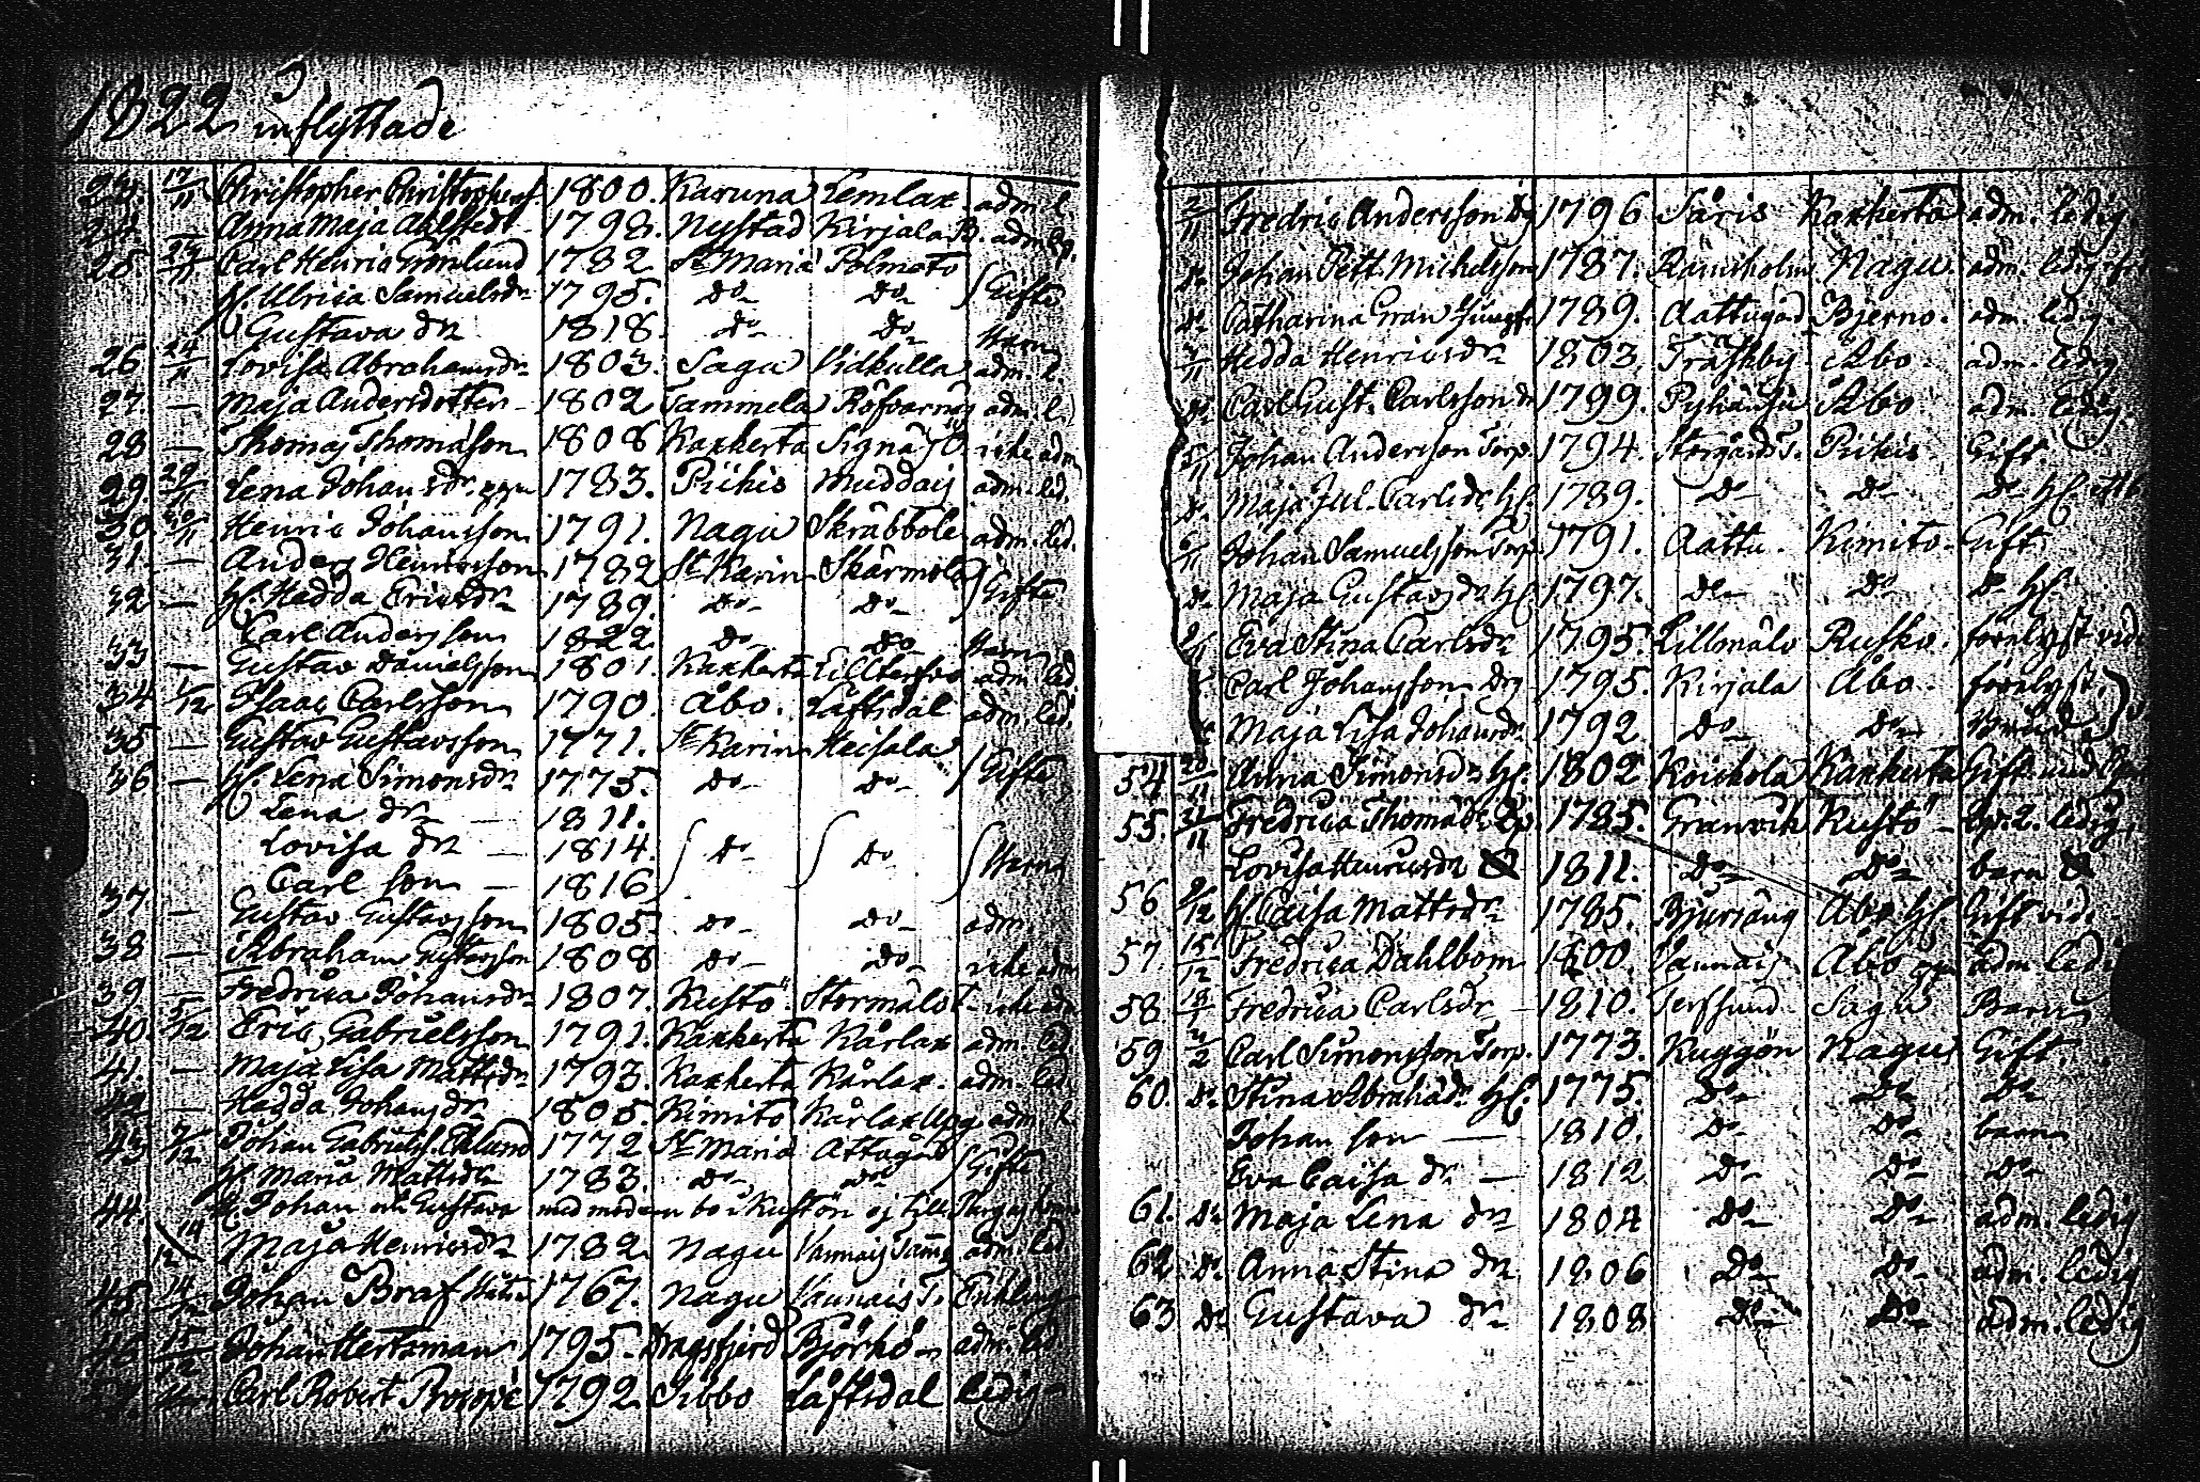 1822 inflyttade
23. 17/11 Christopher Christophers. 1800. Karuna Lemlax. adm. l.
24. — Anna Maja Ahlstedt 1798. Nystad Kirjala B. adm.
25. 24/11 Carl Henric Grönlund 1782 St Maria Polmeto Gifte
H. Ulrica Samuelsdr 1795. do do
Gustava dr 1818 do do Barn
26 24/11 Lovisa Abrahamsdr 1803. Sagu Vidkulla adm. l.
27. — Maja Andersdotter 1802 Tammela Röfvarnäs adm. l.
28 — Thomas Thomasson 1808 Kaxkerta Signäs icke adm
29. 29/11 Lena Johansdr. 1783. Piikis Muddais adm. led.
30. 30/11 Henric Johansson 1791. Nagu Skräbböle adm. led.
31. — Anders Henricsson 1782 St Karin Skärmola Gifte
32 — H. Hedda Ericsdr 1789. do do
Carl Andersson 1822. do do Barn
33 — Gustav Danielsson 1801. Kaxkerta adm. led.
34 1/12 Isaac Carlsson 1790. Åbo. Låftsdal adm. led.
35 — Gustav Gustavsson 1771. St Karin Haisala Gifte
36 — H. Lena Simonsdr 1775. do do
Lena dr — 1811.
Lovisa dr — 1814. do do Barn
Carl son — 1816
37 — Gustav Gustavsson 1805. do do adm.
38 — Abraham Gustavsson 1808 do do icke adm
39 — Fredrica Johansdr 1807. Kustö Stormälo T. icke adm
40. 5/12 Eric Gabrielsson 1791. Kaxkerta Kårlax adm. led.
41. — Maja Lisa Mattsdr 1793. Kaxkerta Kårlax. adm. led.
42 — Hedda Johansdr 1805. Kimito Kårlax adm. l.
43 7/12 Johan Gabrielss. Eklund 1772 St Maria Attugård Gifte
H. Maria Mattsdr 1783. do do
44. Johan och Gustava med modren bo i Kustö ej till
14/12 Maja Henricsdr 1782. Nagu Vannais adm. led.
45 14/12 Johan Braf 1767. Nagu Vannais T. Enkling
46 15/12 Johan Hertsman 1795. Dragsfjerd Björkö adm. led.
Carl Robert Procopé 1792 Sibbo Låftsdal ledig
2/11 Fredric Andersson Dg 1796 Säris Kaxkerta adm. ledig
do Johan Pett. Michelsson 1787. Ramsholm Nagu. adm. ledig
do Catharina Gran 1789. Aattugård Bjerno. adm. ledig.
3/11 Hedda Henricsdr 1803. Träskby Åbo. adm. ledig
do Carl Gust. Carlsson 1799. Åbo adm. ledig.
5/11 Johan Andersson Torp. 1794. Storgårds T. Piikis Gift
do Maja Jul. Carlsdr H. 1789. do do do H.
6/11 Johan Samuelsson Torp. 1791. Aattu. Kimito. Gift
do Maja Gustavsdr H. 1797. do do do H.
Eva Stina Carlsdr 1795. Lillmälo Rusko.
Carl Johansson Drg 1795. Kirjala Åbo.
Maja Lisa Johansdr 1792 do do
54. 20/11 Anna Simonsdr H. 1802 Koickola Kaxkerta Gift med
55. Fredrica Thomasdr 1785. Granvik Kustö ledig
Lovisa Henricsdr 1811. do do barn
56 9/12 H. Caisa Mattsdr 1785. Bjursäng Åbo H. Gift vid
57. 15/12 Fredrica Dahlbom 1800. Vannais Åbo adm ledig
58 Fredrica Carlsdr 1810. Terfsund Sagu Barn
59 3/2 Carl Simonsson Torp. 1773. Kuggön Nagu Gift.
60. do Stina Abrahadr H. 1775. do do do
Johan son — 1810. do do barn
Eva Caisa dr — 1812 do do do
61. do Maja Lena dr 1804 do do adm. ledig
62 do Anna Stina dr 1806 do do adm. ledig
63 do Gustava dr 1808 do do adm. ledig